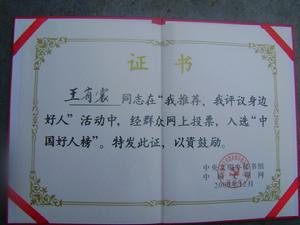 证书
王育震 同志在“我推荐、我评议身边
好人”活动中，经群众网上投票，入选“中
国好人榜”。特发此证，以资鼓励。
中央文明办秘书组
中国文明网
12月